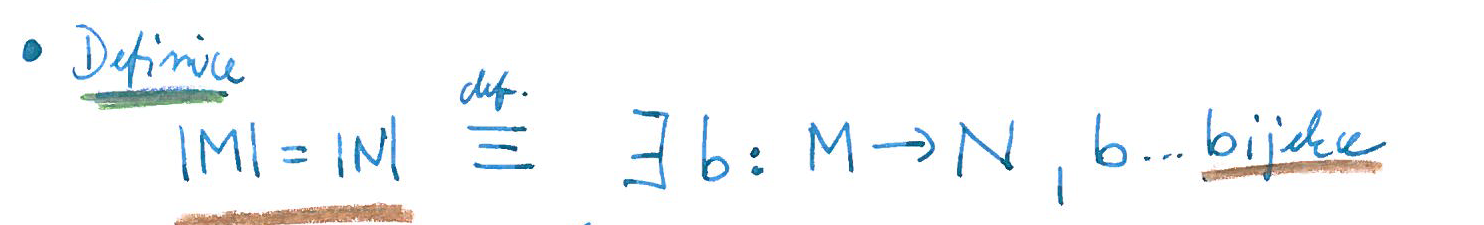 • Definice
def.
|M| = |N| ≡ ∃ b: M → N, b... bijekce